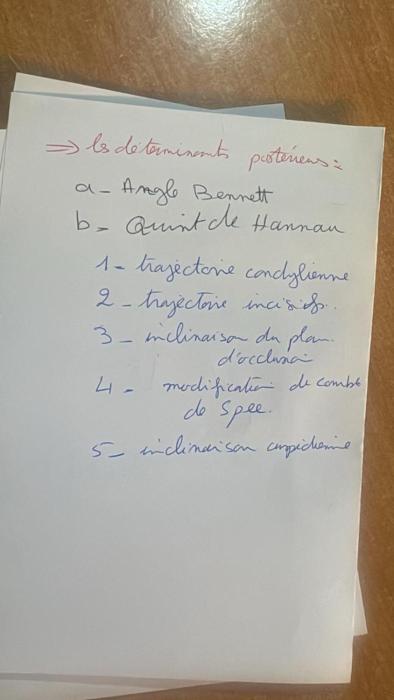 ⇒ les determinants posterieurs :
a - Angle Bennett
b - Quint de Hannau
1 - trajectoire condylienne
2 - trajectoire incisif.
3 - inclinaison du plan
d'occlusion
4 - modification de combe
de Spee.
5 - inclinaison cuspidienne